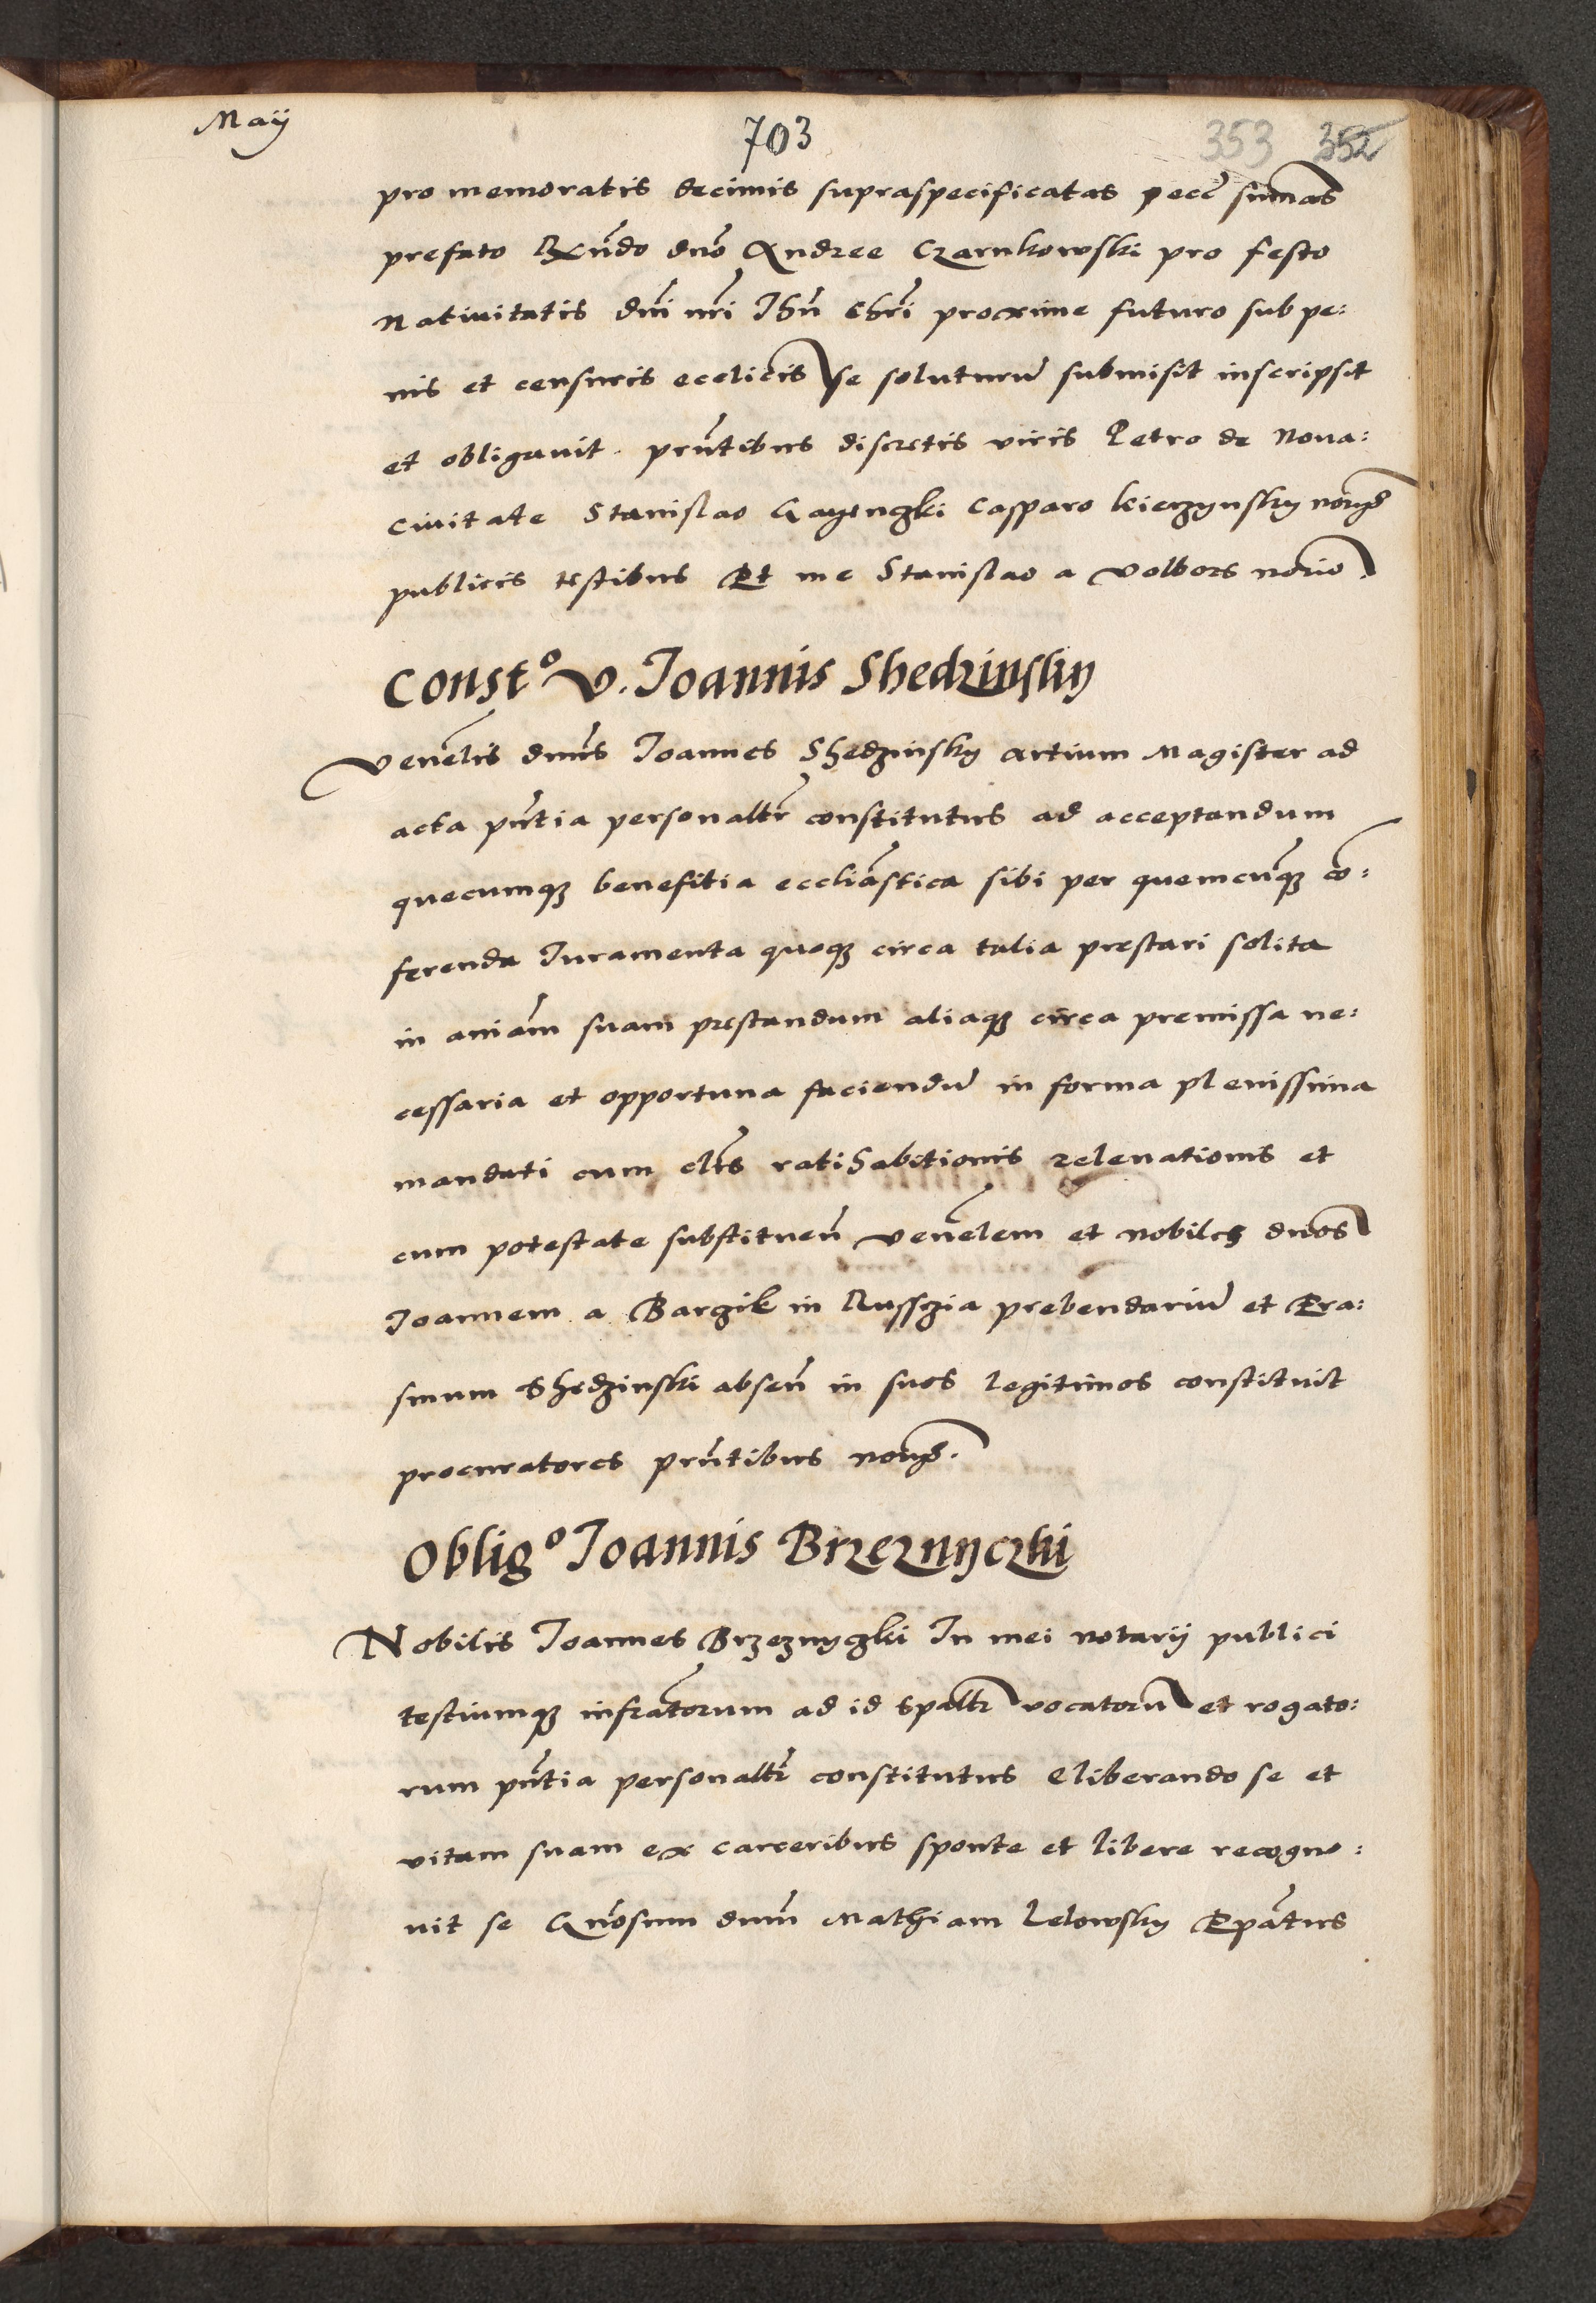 Maij
703
353 352
pro memoratis decimis supraspecificatas pecc̃ sum̃as
prefato Rx̃ndo dño Andree Czarnkowski pro festo
Natiuitatis dñi nr̃i Ihũ Chr̃i proxime futuro sub pe:
nis et censuris eccl̃icis se soluturũ submisit inscripsit
et obligauit. pr̃ntibus discretis viris Petro de Noua:
ciuitate Stanislao Gayengki Casparo Kierzynsky
publicis testibus Et me Stanislao a Volbors norio.
Const.º V. Joannis Shedzinsky
Veneℓ̃is dñus Joannes Shedzinsky artium Magister ad
acta pñtia personalℓr̃ constitutus ad acceptandum
quecumqꝫ benefitia eccliãstica sibi per quemcũqꝫ cõ:
ferenda Juramenta quoqꝫ circa talia prestari solita
in aniãm suam prestandum aliaqꝫ circa premissa ne:
cessaria et opportuna faciendũ in forma plenissima
mandati cum cℓĩs ratihabitionis releuationis et
cum potestate substituen̄ veneℓ̃em et nobiles dños
Joannem a Bargik in Russzia prebendariũ et Era:
smum Shedzinski absen̄ in suos legitimos constituit
procuratores pr̃ntibus
Oblig.º Joannis Brzeznyczki
Nobilis Joannes Brzeznyczki In mei notarij publici
testiumqꝫ infrãtorum ad id spalℓr̃ vocatorũ et rogato:
rum pñtia personalℓr̃ constitutus eliberando se et
vitam suam ex carceribus sponte et libere recogno:
uit se Gñosum dnũm Mathiam Lelowsky Epãtus